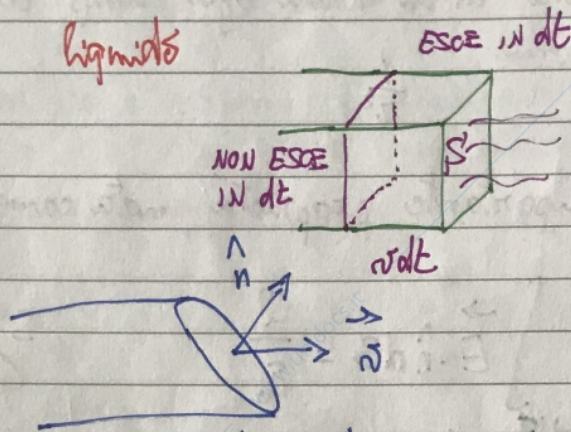 liquids
ESCE IN dt
NON ESCE
IN dt
S
vdt
n̂
v⃗